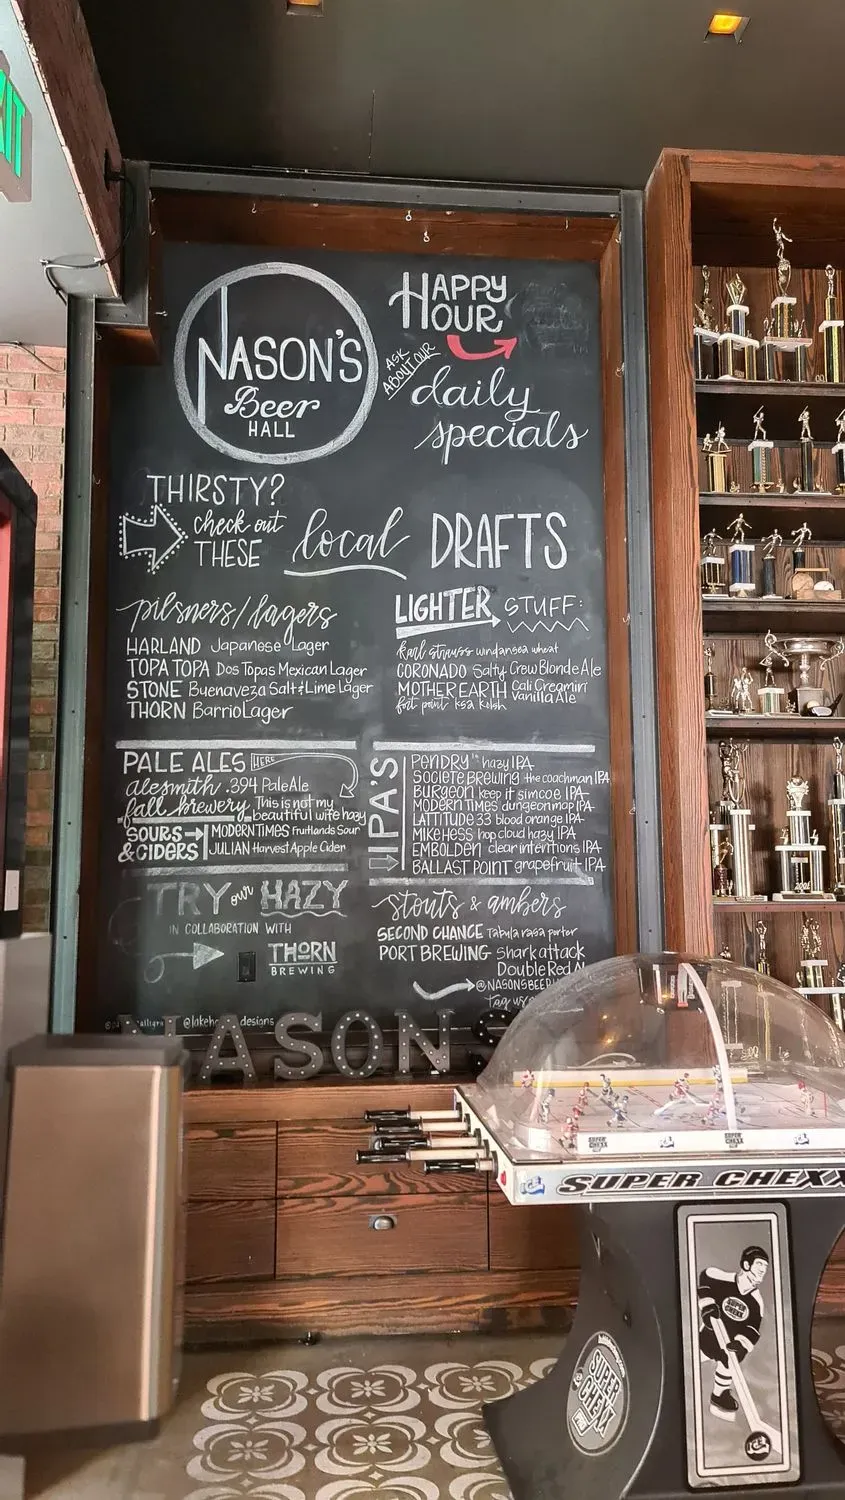 NASON'S
Beer
HALL
HAPPY
HOUR
ASK
ABOUT OUR
daily
specials
THIRSTY?
check out
THESE
local DRAFTS
pilsners/lagers
HARLAND Japanese Lager
TOPA TOPA Dos Topas Mexican Lager
STONE Buenaveza Salt & Lime Lager
THORN Barrio Lager
LIGHTER STUFF:
karl strauss windansea wheat
CORONADO Salty Crew Blonde Ale
MOTHER EARTH Cali Creamin'
Vanilla Ale
fort point ksa kolsh
PALE ALES HERE
alesmith .394 Pale Ale
fall brewery This is not my
beautiful wife hazy
SOURS
& CIDERS
MODERN TIMES Fruitlands Sour
JULIAN Harvest Apple Cider
IPA'S
PENDRY hazy IPA
SOCIETE BREWING the coachman IPA
BURGEON keep it simcoe IPA
MODERN TIMES dungeon map IPA
LATITUDE 33 blood orange IPA
MIKE HESS hop cloud hazy IPA
EMBOLDEN clear intentions IPA
BALLAST POINT grapefruit IPA
TRY our HAZY
IN COLLABORATION WITH
THORN
BREWING
stouts & ambers
SECOND CHANCE tabula rasa porter
PORT BREWING shark attack
Double Red
@NASONSBEER
tag us
NASONS
SUPER CHEXX
SUPER
CHEXX
PRO